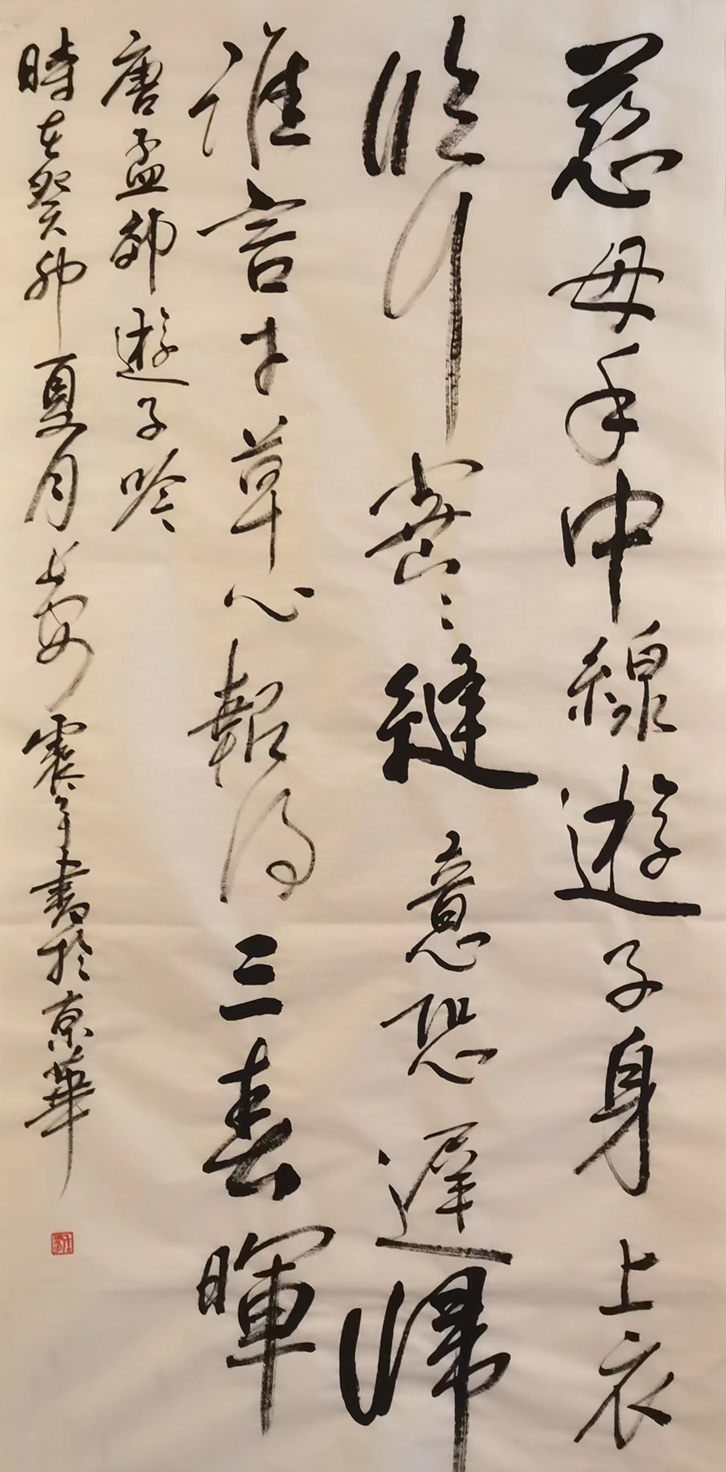 慈母手中線遊子身上衣
臨行密〻縫意恐遲歸
誰言寸草心報得三春暉
唐孟郊遊子吟
時在癸卯夏月長安震書於京華